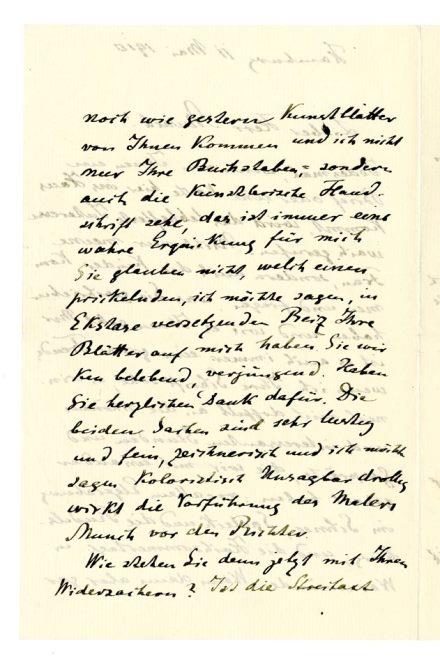 noch wie gestern Kunstblätter
von Ihnen kommen und ich nicht
nur Ihre Buchstaben, sondern
auch die künstlerische Hand-
schrift sehe, das ist immer eine
wahre Erquickung für mich
Sie glauben nicht, welch einen
prickelnden, ich möchte sagen, in
Ekstase versetzenden Reiz Ihre
Blätter auf mich haben Sie wir
ken belebend, verjüngend. Haben
Sie herzlichen Dank dafür. Die
beiden Sachen sind sehr lustig
und fein, zeichnerisch und ich möchte
sagen koloristisch Unsagbar drollig
wirkt die Vorführung des Malers
Munch vor den Richter.
Wie stehen Sie denn jetzt mit Ihren
Widersachern? Ist die Streitaxt